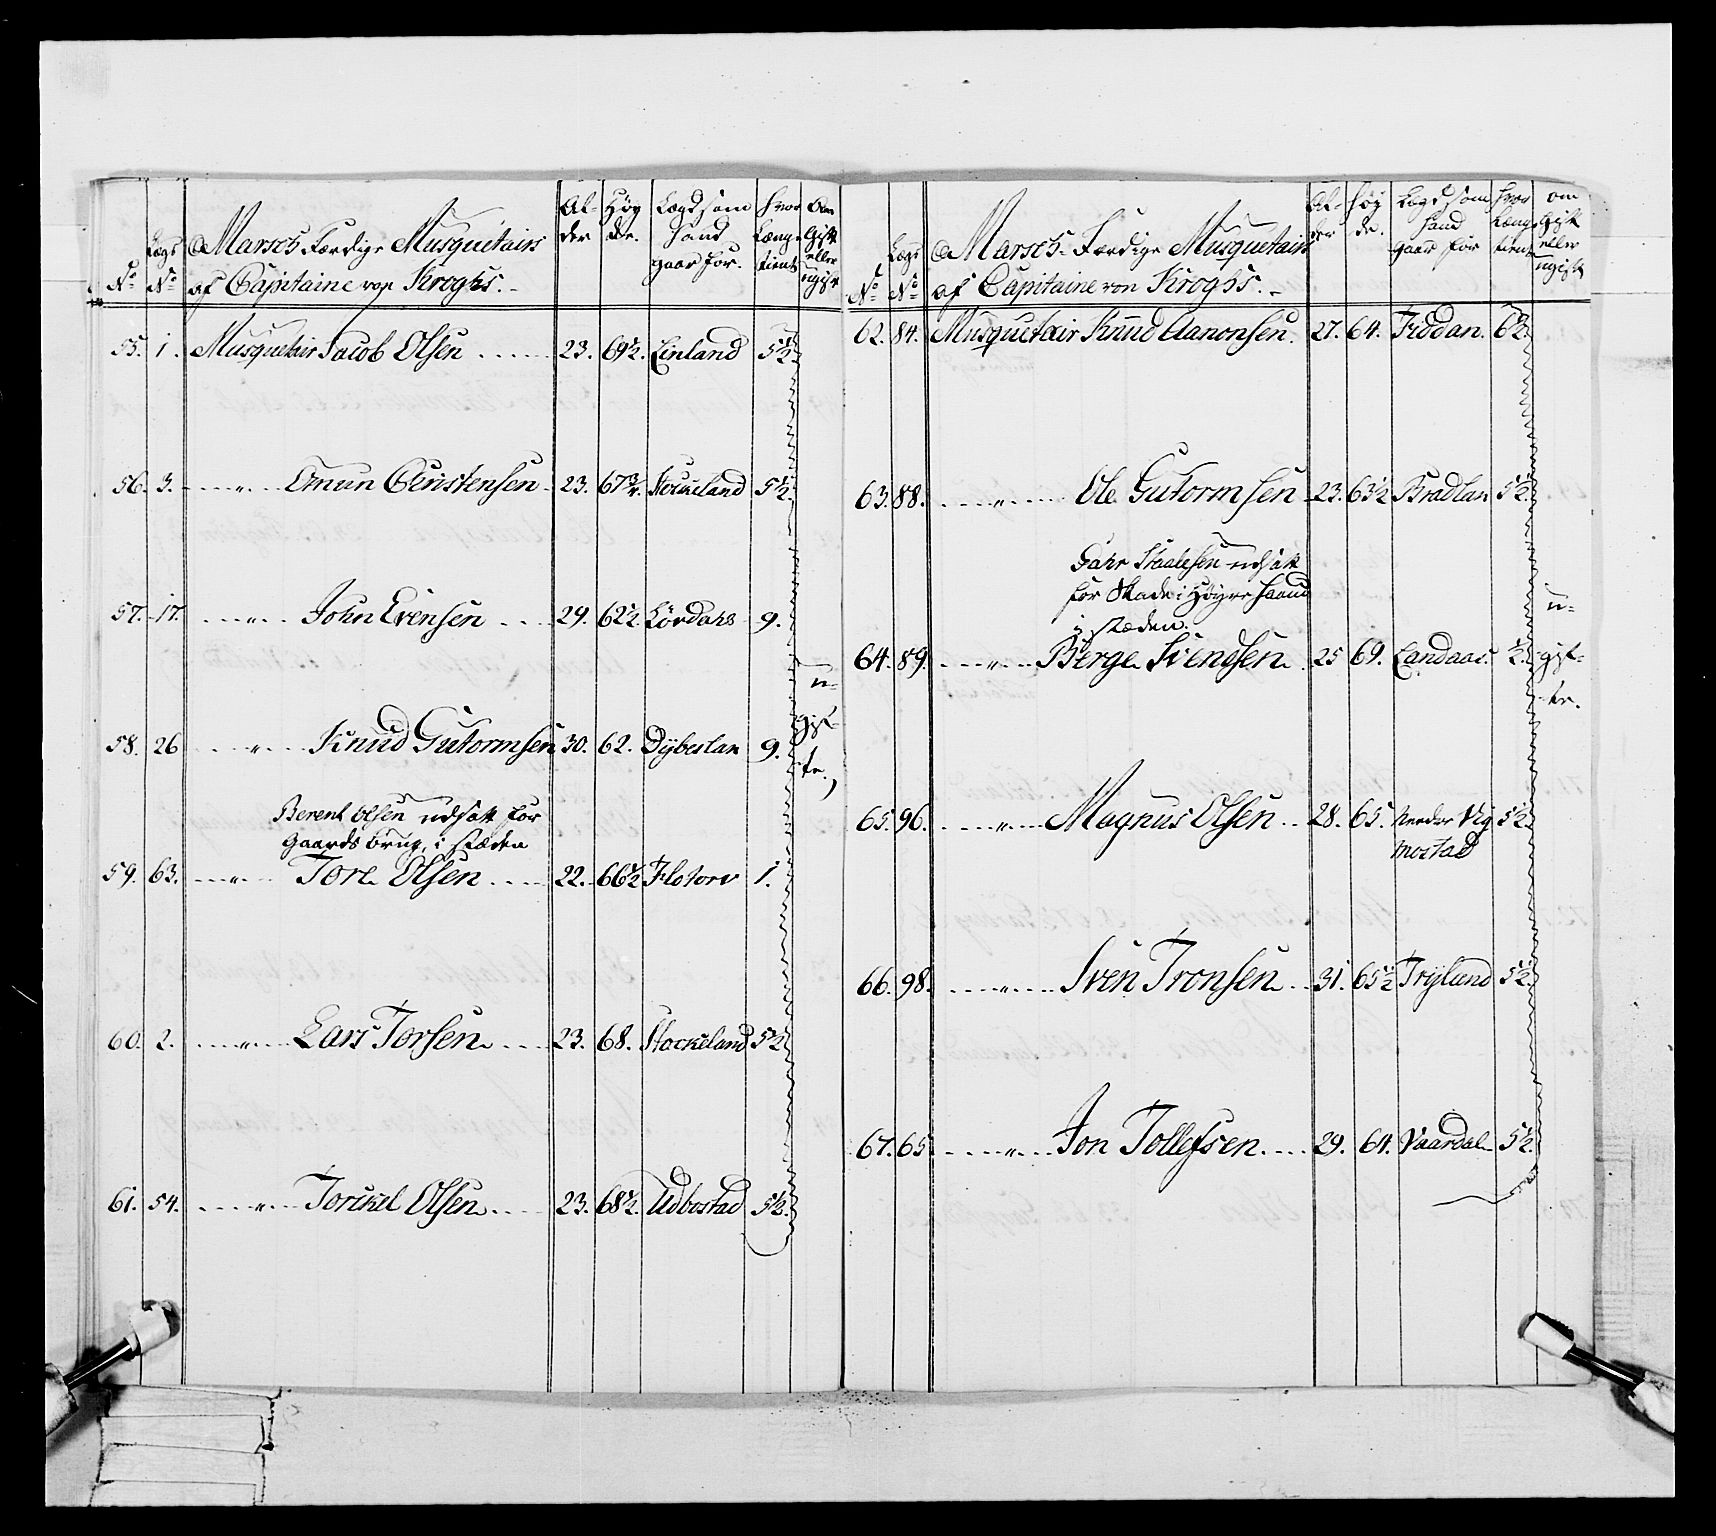 No
Lægs No
Marsch-Færdige Musquetairs
af Capitaine von Kroghs.
Al-
der
Høy
de.
Lægd som
hand
gaar for.
hvor
Længe
tient
Om
Gift
eller
ugift
55. 1. Musquetair Jacob Olsen 23. 69½. Einland 5½.
56. 3. -"- Omun Christensen 23. 67¾. 5½.
57. 17. -"- John Evensen 29. 62½ Lördahs 9.
58. 26 -"- Knud Gutormsen 30. 62. Dybeslan 9.
u-
gif-
te.
Berent Olsen udsatt for
Gaards brug, i stæden
59. 63. -"- Tore Olsen 22. 66½ Flotorv 1.
60. 2. -"- Lars Torsen 23. 68. Stockeland 5½
61. 54. -"- Torckel Olsen 23. 68½. Udbostad 5½.
No
Lægs No
Marsch-Færdige Musquetairs
af Capitaine von Kroghs.
Al-
der
høy
de.
Lægd som
hand
gaar for
hvor
Længe
tient
om
Gift
eller
ugift
62. 84. Musquetair Knud Aanonsen. 27. 64. Frödan. 6½.
63. 88. -"- Ole Gutormsen 23. 63½ Bradlan 5½.
Gahr Staalesen udsatt
for Skade i Høyre haand
i stæden.
64. 89. -"- Börge Svendsen 25 69. Landaas. ½.
u-
gif-
te.
65. 96. -"- Magnus Olsen 28. 65. Neder Vig
mostad 5½.
66. 98. -"- Sven Tronsen 31. 65½ Trylund 5½.
67. 65 -"- Jon Tollefsen 29. 64. Vaardal 5½.